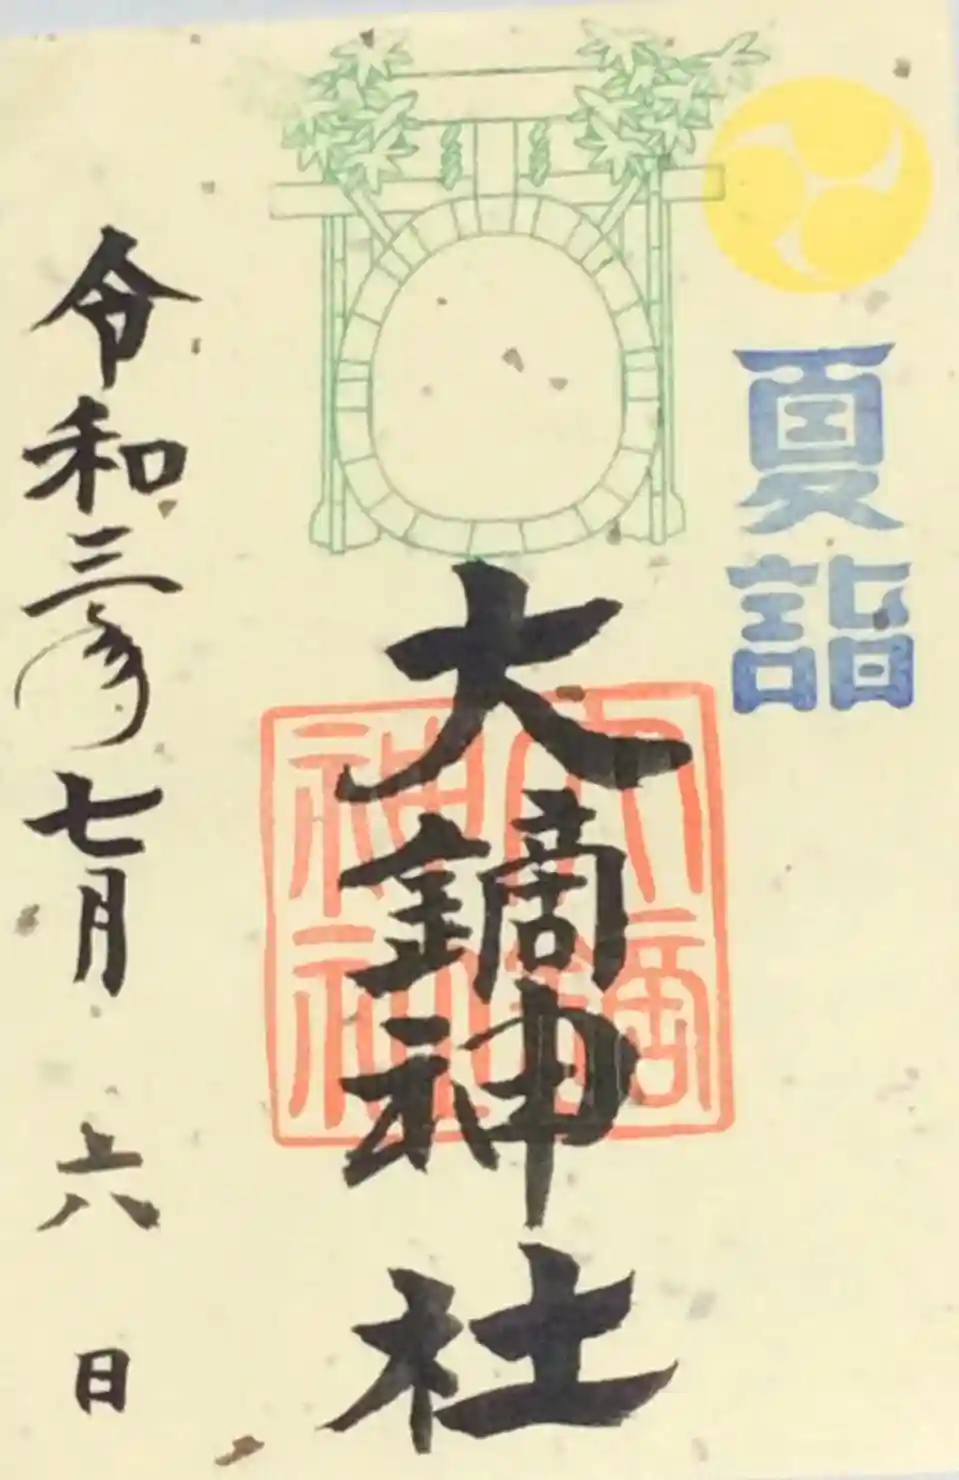 夏詣
大鏑神社
大鏑
神社
令和三年七月六日